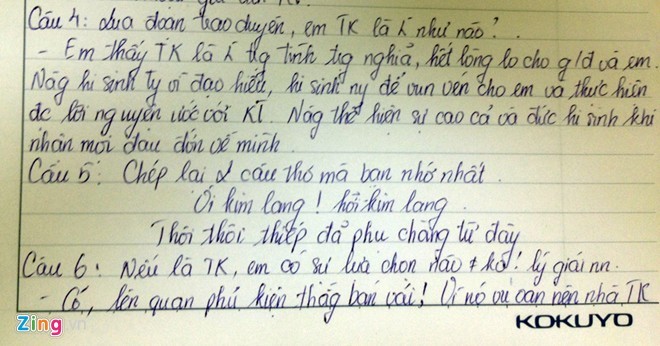 Câu 4: dựa đoạn trao duyên, em TK là ỉ như nào?
- Em thấy TK là ỉ tg tình tg nghĩa, hết lòng lo cho g/đ và em.
Nàg hi sinh ty vì đạo hiếu, hi sinh ny để vun vén cho em và thực hiện
đc lời nguyện ước với KT. Nàg thể hiện sự cao cả và đức hi sinh khi
nhận mọi đau đớn về mình.
Câu 5: Chép lại 2 câu thơ mà bạn nhớ nhất.
Ôi kim lang! hỡi kim lang
Thôi thôi thiếp đã phụ chàng từ đây
Câu 6: Nếu là TK, em có sự lựa chọn nào ≠ ko? lý giải nn.
- Có, lên quan phủ kiện thằg bán vải! Vì nó vu oan nên nhà TK
Zing.vn
KOKUYO